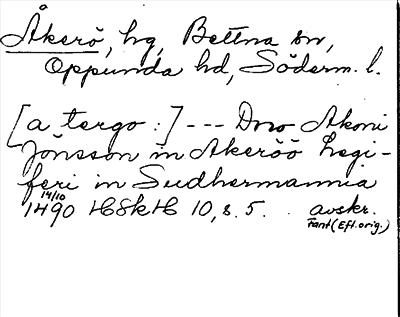 Åkerö, hg, Bettna sn,
Oppunda hd, Söderm. l.
[a tergo:] --- Dno Akoni
Jönsson in Akeröö hegi-
feri in Sudhermannia
14/10
1490 HSkH 10, s. 5. avskr.
Fant (Eft. orig.)